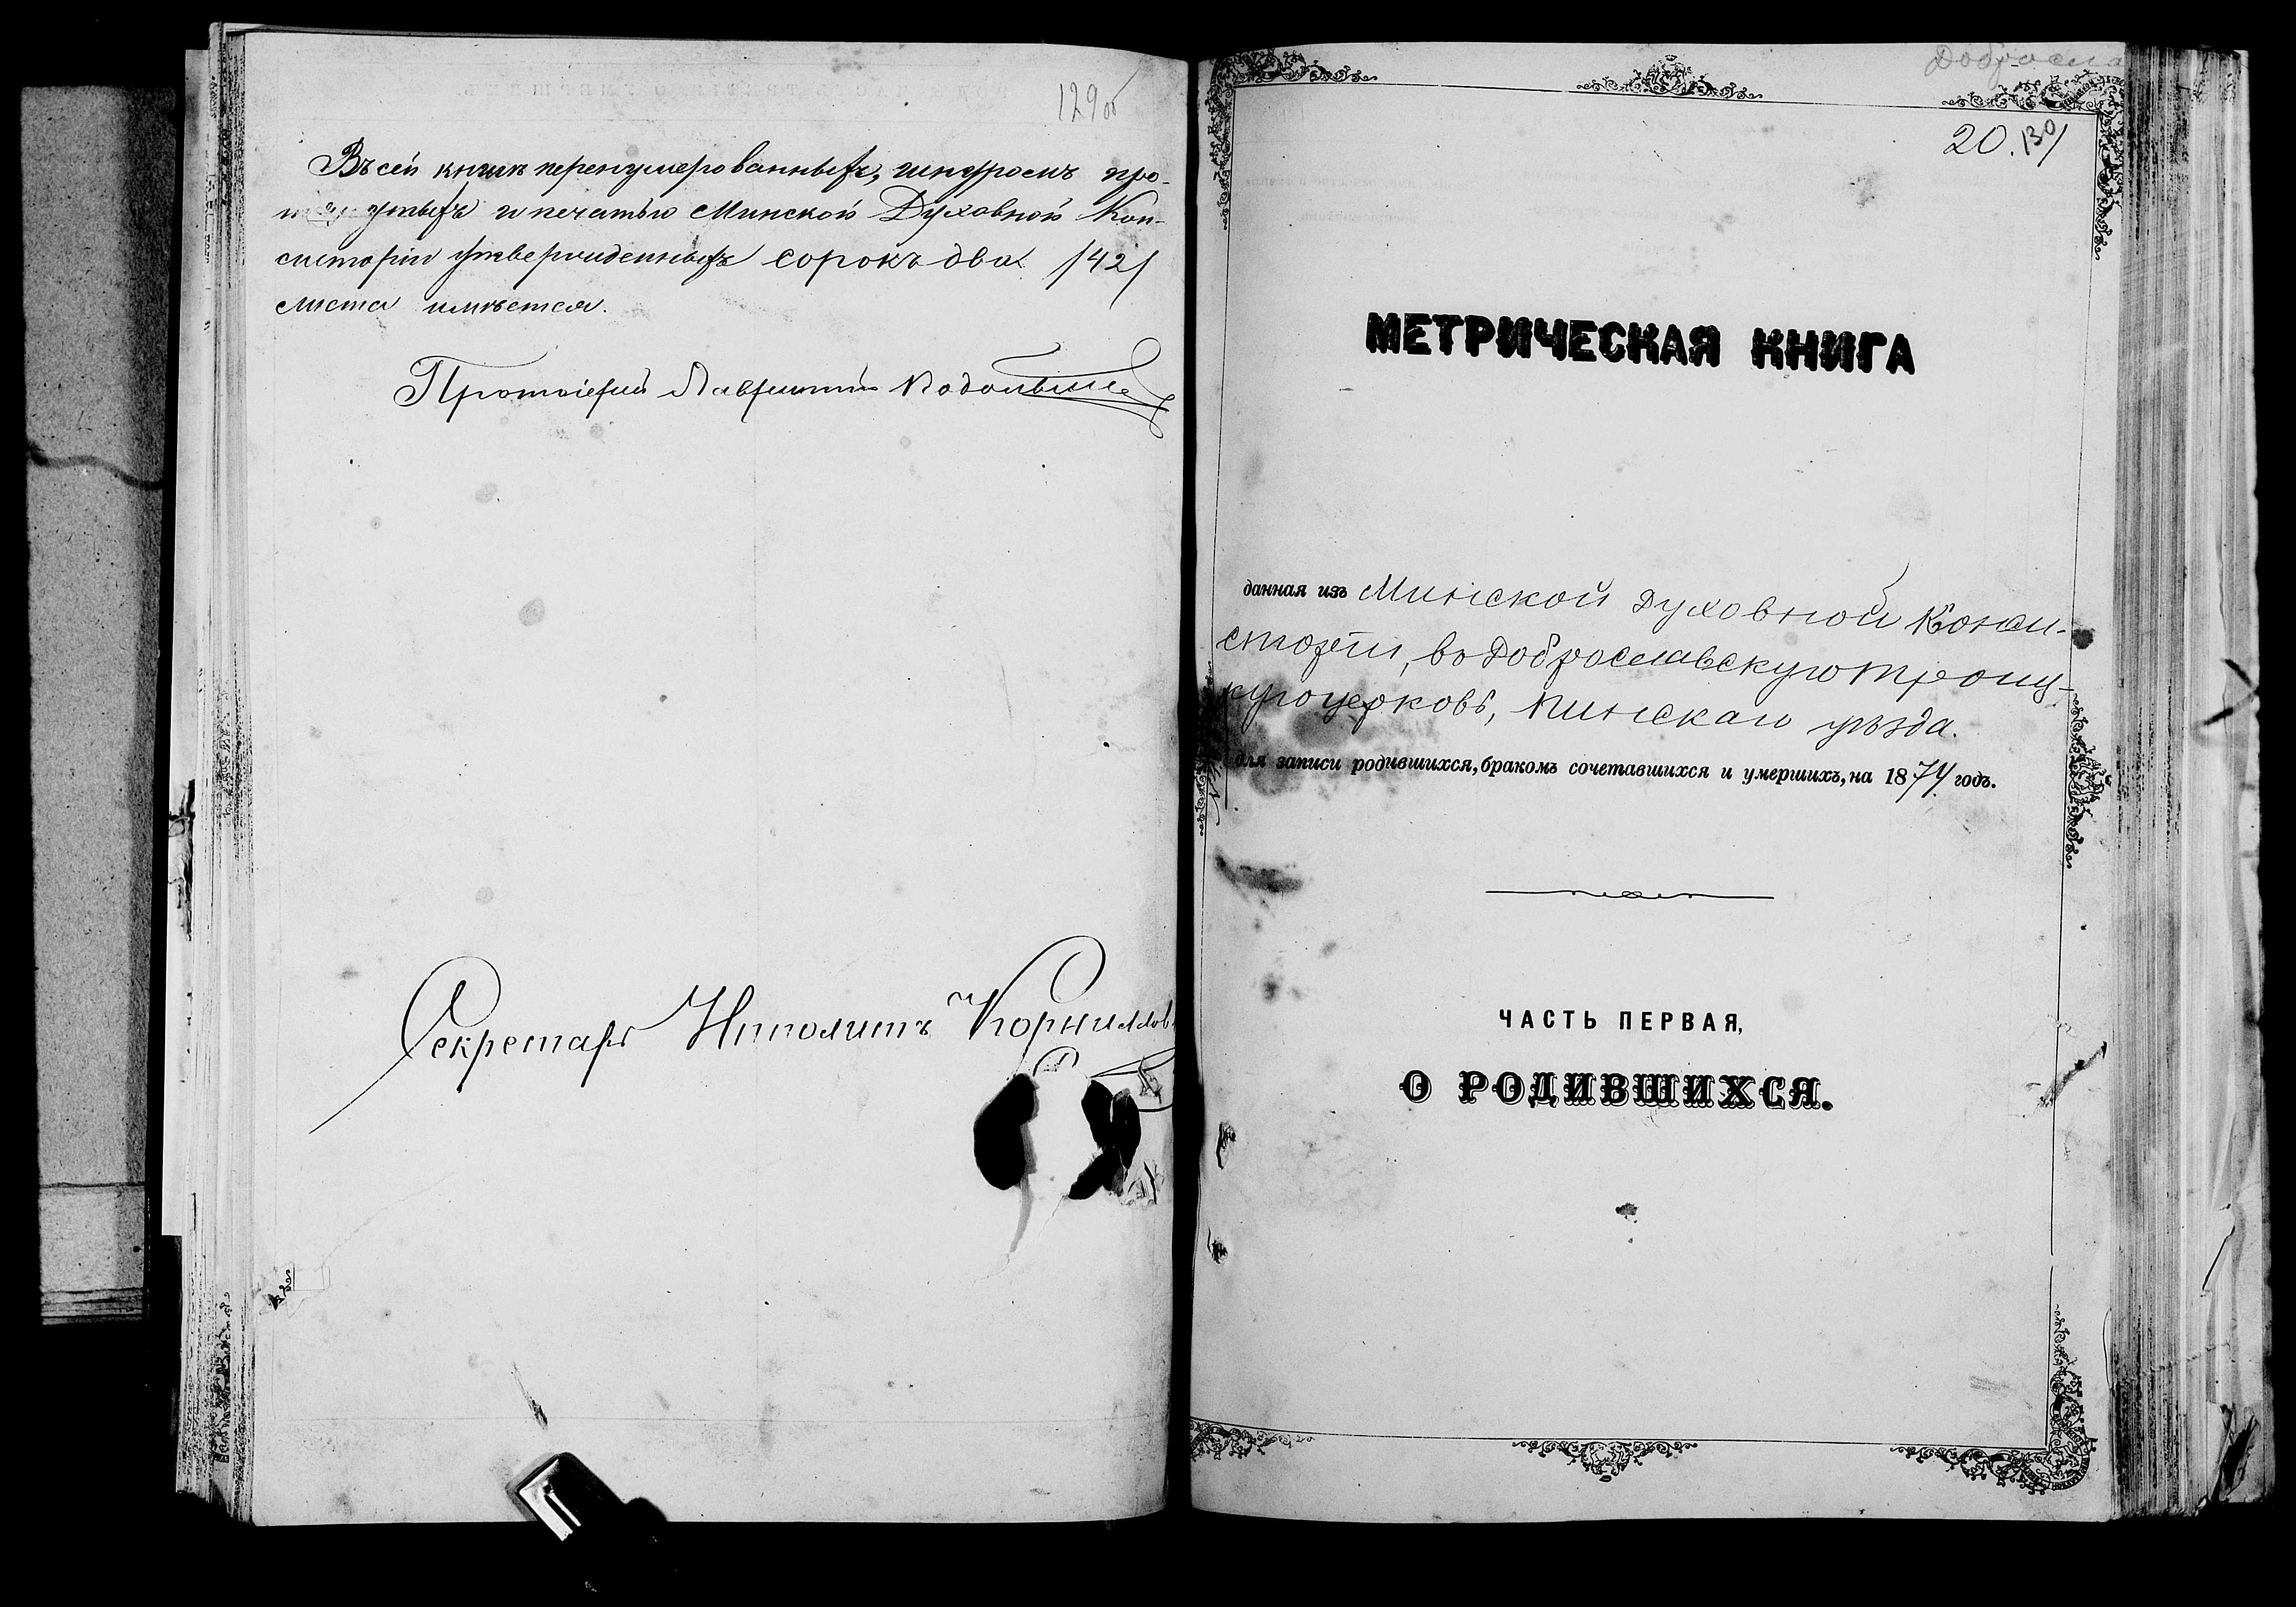 129об
Въ сей книгѣ перенумерованныхъ, шнуромъ про-
тянутыхъ и печатью Минской Духовной Кон-
систоріи утвержденныхъ сорокъ два /42/
листа имѣется.
Протоіерей Лаврентій Подольск
Секретарь Иполитъ Корнилов
Добросла
20. 130/
МЕТРИЧЕСКАЯ КНИГА
данная изъ Минской Духовной Конси-
сторіи, въ Доброславскую Троиц-
кую церковь, Пинскаго уѣзда.
для записи родившихся, бракомъ сочетавшихся и умершихъ, на 1874 годъ.
ЧАСТЬ ПЕРВАЯ,
О РОДИВШИХСЯ.